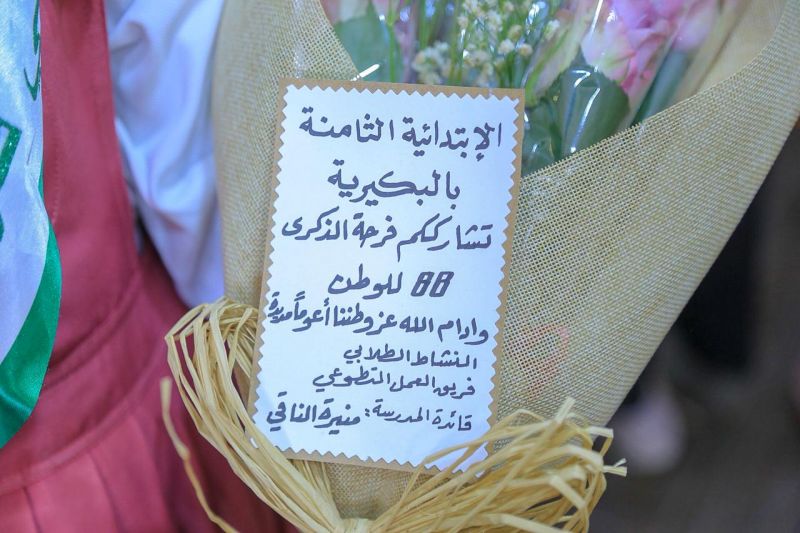 الإبتدائية الثامنة
بالبكيرية
تشارككم فرحة الذكرى
88 للوطن
وادام الله عز وطننا أعوماً مديدة
النشاط الطلابي
فريق العمل التطوعي
قائدة المدرسة: منيرة الناقي